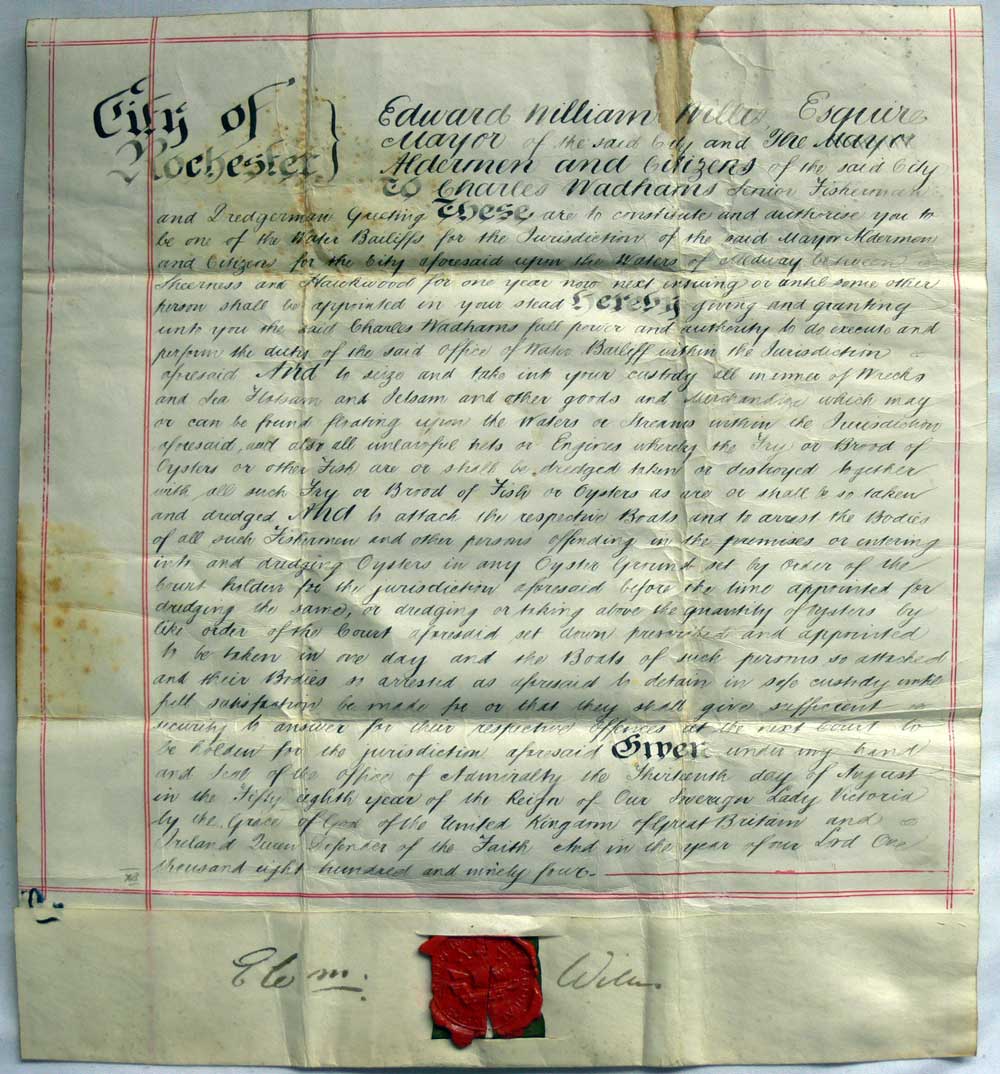 City of
Rochester
Edward William Willis Esquire
Mayor of the said City and The Mayor
Aldermen and Citizens of the said City
To Charles Wadhams Senior Fisherman
and Dredgerman Greeting These are to constitute and authorise you to
be one of the Water Bailiffs for the Jurisdiction of the said Mayor Aldermen
and Citizens for the City aforesaid upon the Waters of Medway between
Sheerness and Hawkwood for one year now next ensuing or until some other
person shall be appointed in your stead hereby giving and granting
unto you the said Charles Wadhams full power and authority to do execute and
perform the duties of the said Office of Water Bailiff within the Jurisdiction
aforesaid And to seize and take into your custody all manner of Wrecks
and Sea Flotsam and Jetsam and other goods and Merchandize which may
or can be found floating upon the Waters or Streams within the Jurisdiction
aforesaid, and also all unlawful nets or Engines whereby the Fry or Brood of
Oysters or other Fish are or shall be dredged taken or destroyed together
with all such Fry or Brood of Fish or Oysters as are or shall be so taken
and dredged And to attach the respective Boats and to arrest the Bodies
of all such Fishermen and other persons offending in the premises or entering
into and dredging Oysters in any Oyster Ground set by Order of the
Court holden for the jurisdiction aforesaid before the time appointed for
dredging the same, or dredging or taking above the quantity of oysters by
like order of the Court aforesaid set down prescribed and appointed
to be taken in one day and the Boats of such persons so attached
and their Bodies so arrested as aforesaid to detain in safe custody until
full satisfaction be made for or that they shall give sufficient
security to answer for their respective Offences at the next Court to
be holden for the jurisdiction aforesaid Given under my hand
and Seal of the office of Admiralty the Thirteenth day of August
in the Fifty eighth year of the Reign of Our Sovereign Lady Victoria
by the Grace of God of the United Kingdom of Great Britain and
Ireland Queen Defender of the Faith And in the year of our Lord One
thousand eight hundred and ninety four
Willis